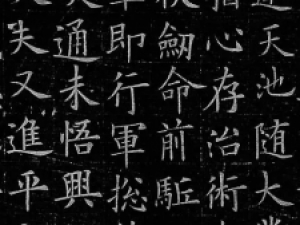 天池随大
心存治術
劒命前駈
即行軍捴
通未悟興
失又進平